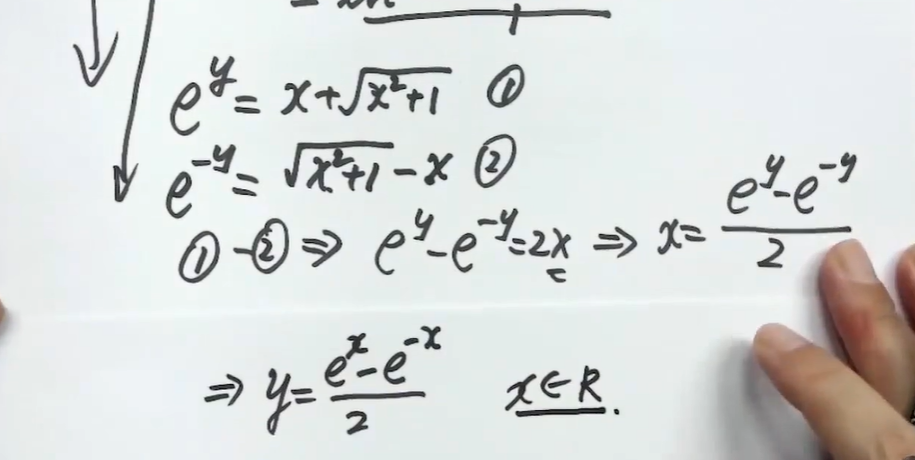 e^y = x+√(x²+1) ①
e^{-y} = √(x²+1) - x ②
①-② ⇒ e^y - e^{-y} = 2x ⇒ x = (e^y - e^{-y})/2
⇒ y = (e^x - e^{-x})/2 x∈R.